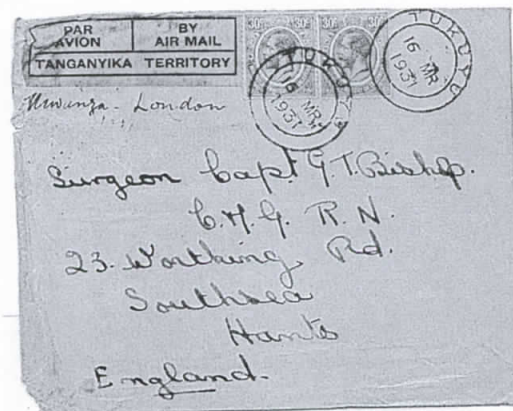 PAR AVION BY AIR MAIL
TANGANYIKA TERRITORY
30c 30c 30c
TUKUYU
16 MR
1931
TUKUYU
16 MR
1931
Mwanza - London
Surgeon Capt G T. Bishop.
C.M.G. R.N.
23. Worthing Rd.
Southsea
Hants
England.